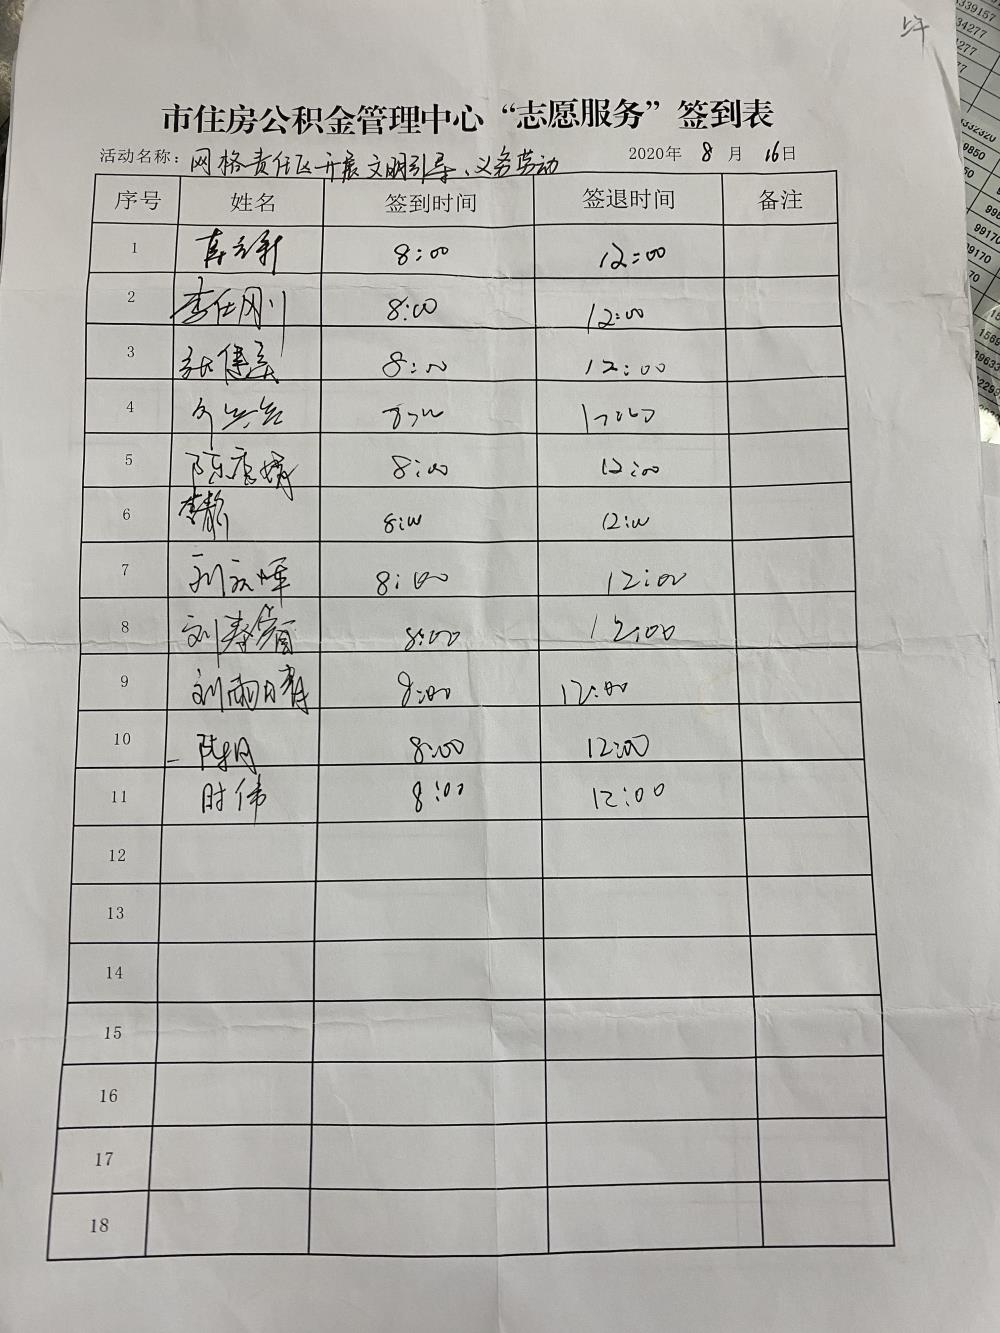 上午
市住房公积金管理中心“志愿服务”签到表
活动名称：网格责任区开展文明引导、义务劳动 2020年 8 月 16日
序号 姓名 签到时间 签退时间 备注
1 8:00 12:00
2 李仕刚 8:00 12:00
3 8:00 12:00
4 8:00 12:00
5 8:00 12:00
6 李静 8:00 12:00
7 8:00 12:00
8 8:00 12:00
9 刘雨晴 8:00 12:00
10 8:00 12:00
11 时伟 8:00 12:00
12
13
14
15
16
17
18